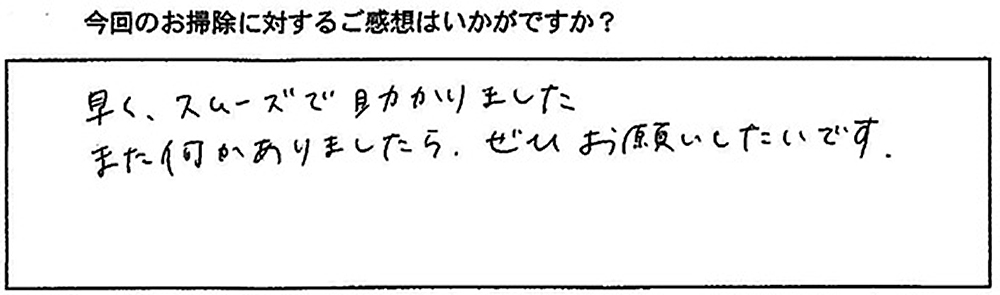 今回のお掃除に対するご感想はいかがですか？
早く、スムーズで助かりました
また何かありましたら、ぜひお願いしたいです.